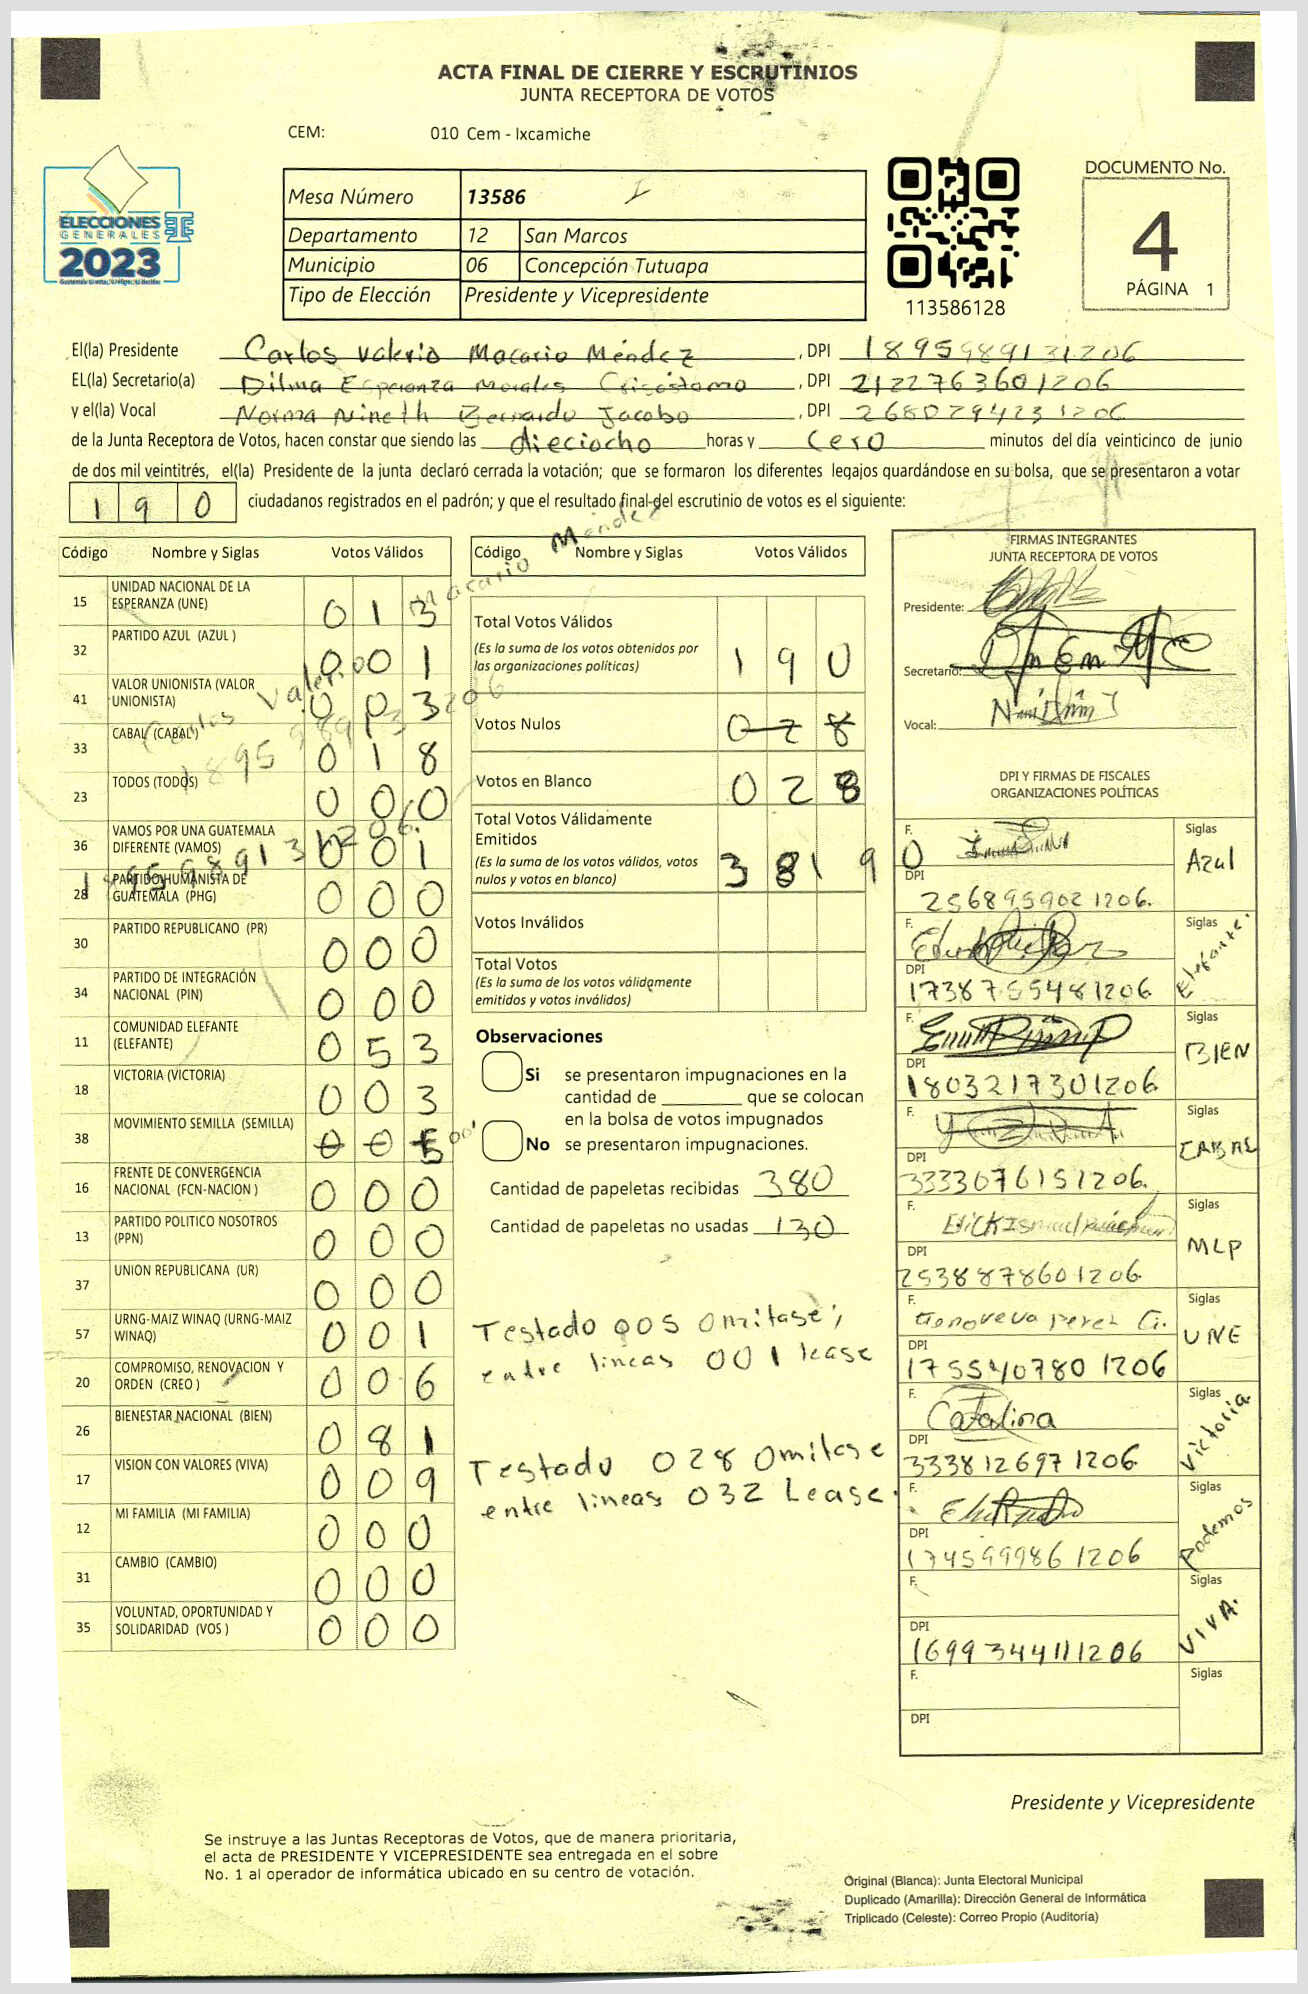 ACTA FINAL DE CIERRE Y ESCRUTINIOS
JUNTA RECEPTORA DE VOTOS
CEM: 010 Cem - Ixcamiche
ELECCIONES
GENERALES
2023
Mesa Número 13586
Departamento 12 San Marcos
Municipio 06 Concepción Tutuapa
Tipo de Elección Presidente y Vicepresidente
113586128
DOCUMENTO No.
4
PÁGINA 1
El(la) Presidente Carlos Valerio Macario Méndez , DPI 1895989131206
EL(la) Secretario(a) Dilma Esperanza Morales Crisóstomo , DPI 2122763601206
y el(la) Vocal Norma Nineth Bernardo Jacobo , DPI 2680294231206
de la Junta Receptora de Votos, hacen constar que siendo las dieciocho horas y cero minutos del día veinticinco de junio
de dos mil veintitrés, el(la) Presidente de la junta declaró cerrada la votación; que se formaron los diferentes legajos guardándose en su bolsa, que se presentaron a votar
190 ciudadanos registrados en el padrón; y que el resultado final del escrutinio de votos es el siguiente:
Código Nombre y Siglas Votos Válidos
15 UNIDAD NACIONAL DE LA ESPERANZA (UNE) 013
32 PARTIDO AZUL (AZUL ) 001
41 VALOR UNIONISTA (VALOR UNIONISTA) 003
33 CABAL (CABAL) 018
23 TODOS (TODOS) 000
36 VAMOS POR UNA GUATEMALA DIFERENTE (VAMOS) 001
28 PARTIDO HUMANISTA DE GUATEMALA (PHG) 000
30 PARTIDO REPUBLICANO (PR) 000
34 PARTIDO DE INTEGRACIÓN NACIONAL (PIN) 000
11 COMUNIDAD ELEFANTE (ELEFANTE) 053
18 VICTORIA (VICTORIA) 003
38 MOVIMIENTO SEMILLA (SEMILLA) 005 001
16 FRENTE DE CONVERGENCIA NACIONAL (FCN-NACION ) 000
13 PARTIDO POLITICO NOSOTROS (PPN) 000
37 UNION REPUBLICANA (UR) 000
57 URNG-MAIZ WINAQ (URNG-MAIZ WINAQ) 001
20 COMPROMISO, RENOVACION Y ORDEN (CREO ) 006
26 BIENESTAR NACIONAL (BIEN) 081
17 VISION CON VALORES (VIVA) 009
12 MI FAMILIA (MI FAMILIA) 000
31 CAMBIO (CAMBIO) 000
35 VOLUNTAD, OPORTUNIDAD Y SOLIDARIDAD (VOS ) 000
Carlos Valerio Macario Méndez
1895989131206
Código Nombre y Siglas Votos Válidos
Total Votos Válidos 190
(Es la suma de los votos obtenidos por
las organizaciones políticas)
Votos Nulos 028
Votos en Blanco 028
Total Votos Válidamente
Emitidos
(Es la suma de los votos válidos, votos
nulos y votos en blanco) 38190
Votos Inválidos
Total Votos
(Es la suma de los votos válidamente
emitidos y votos inválidos)
Observaciones
Si se presentaron impugnaciones en la
cantidad de ________ que se colocan
en la bolsa de votos impugnados
No se presentaron impugnaciones.
Cantidad de papeletas recibidas 380
Cantidad de papeletas no usadas 130
Testado 005 Omitase;
entre lineas 001 lease
Testado 028 Omitase
entre lineas 032 Lease.
FIRMAS INTEGRANTES
JUNTA RECEPTORA DE VOTOS
Presidente:
Secretario:
Vocal:
DPI Y FIRMAS DE FISCALES
ORGANIZACIONES POLÍTICAS
F. Siglas Azul
DPI 2568959021206.
F. Siglas Elefante.
DPI 1738755481206.
F. Siglas BIEN
DPI 1803217301206
F. Siglas CABAL
DPI 3333076151206.
F. Siglas MLP
DPI 2538878601206
F. Genoveva perez Siglas UNE
DPI 1755407801206
F. Catalina Siglas Victoria
DPI 3338126971206
F. Siglas Podemos
DPI 1745999861206
F. Siglas VIVA.
DPI 1699344111206
F. Siglas
DPI
Presidente y Vicepresidente
Se instruye a las Juntas Receptoras de Votos, que de manera prioritaria,
el acta de PRESIDENTE Y VICEPRESIDENTE sea entregada en el sobre
No. 1 al operador de informática ubicado en su centro de votación.
Original (Blanca): Junta Electoral Municipal
Duplicado (Amarilla): Dirección General de Informática
Triplicado (Celeste): Correo Propio (Auditoría)